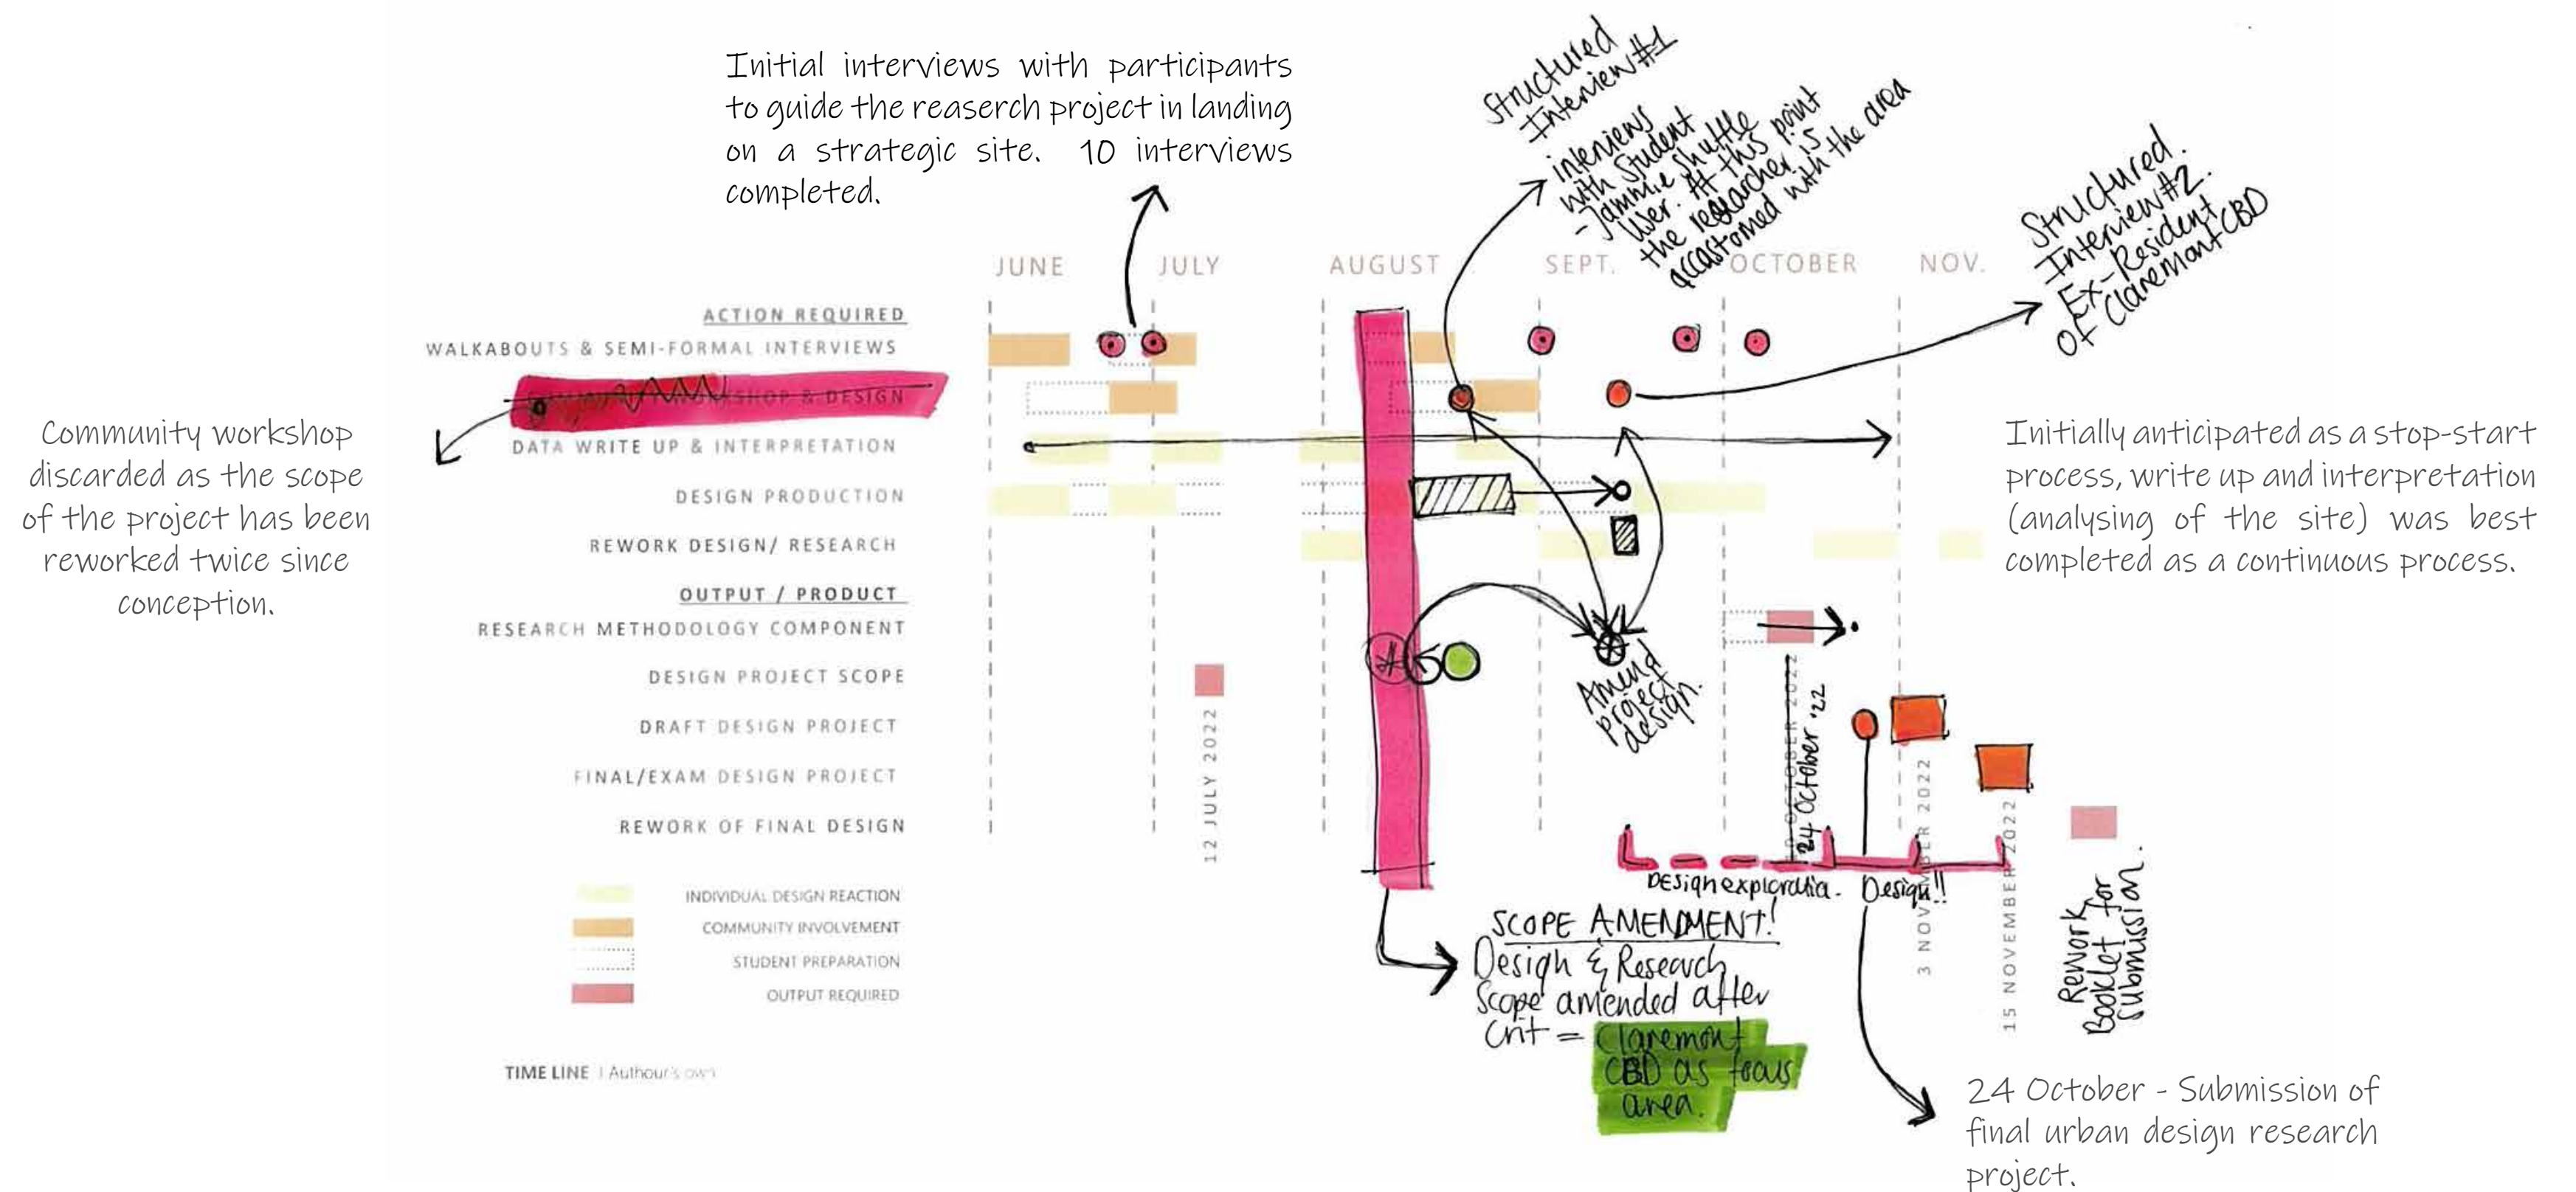 Initial interviews with participants
to guide the reaserch project in landing
on a strategic site. 10 interviews
completed.
Structured
Interview #1
interviews
with Student
- Jammie Shuttle
User. At this point
the researcher is
accastomed with the area
Structured.
Interview #2.
Ex-Resident
Of Claremont CBD
JUNE
JULY
AUGUST
SEPT.
OCTOBER
NOV.
ACTION REQUIRED
WALKABOUTS & SEMI-FORMAL INTERVIEWS
& DESIGN
DATA WRITE UP & INTERPRETATION
DESIGN PRODUCTION
REWORK DESIGN/ RESEARCH
OUTPUT / PRODUCT
RESEARCH METHODOLOGY COMPONENT
DESIGN PROJECT SCOPE
DRAFT DESIGN PROJECT
FINAL/EXAM DESIGN PROJECT
REWORK OF FINAL DESIGN
Community workshop
discarded as the scope
of the project has been
reworked twice since
conception.
Initially anticipated as a stop-start
process, write up and interpretation
(analysing of the site) was best
completed as a continuous process.
12 JULY 2022
Amend
project
design.
OCTOBER 2022
24 October '22
3 NOVEMBER 2022
15 NOVEMBER 2022
Design!!
Rework
Booklet for
Submission.
INDIVIDUAL DESIGN REACTION
COMMUNITY INVOLVEMENT
STUDENT PREPARATION
OUTPUT REQUIRED
SCOPE AMENDMENT!
Design & Research
Scope amended after
Crit = Claremont
CBD as focus
area.
TIME LINE | Authour's own
24 October - Submission of
final urban design research
project.